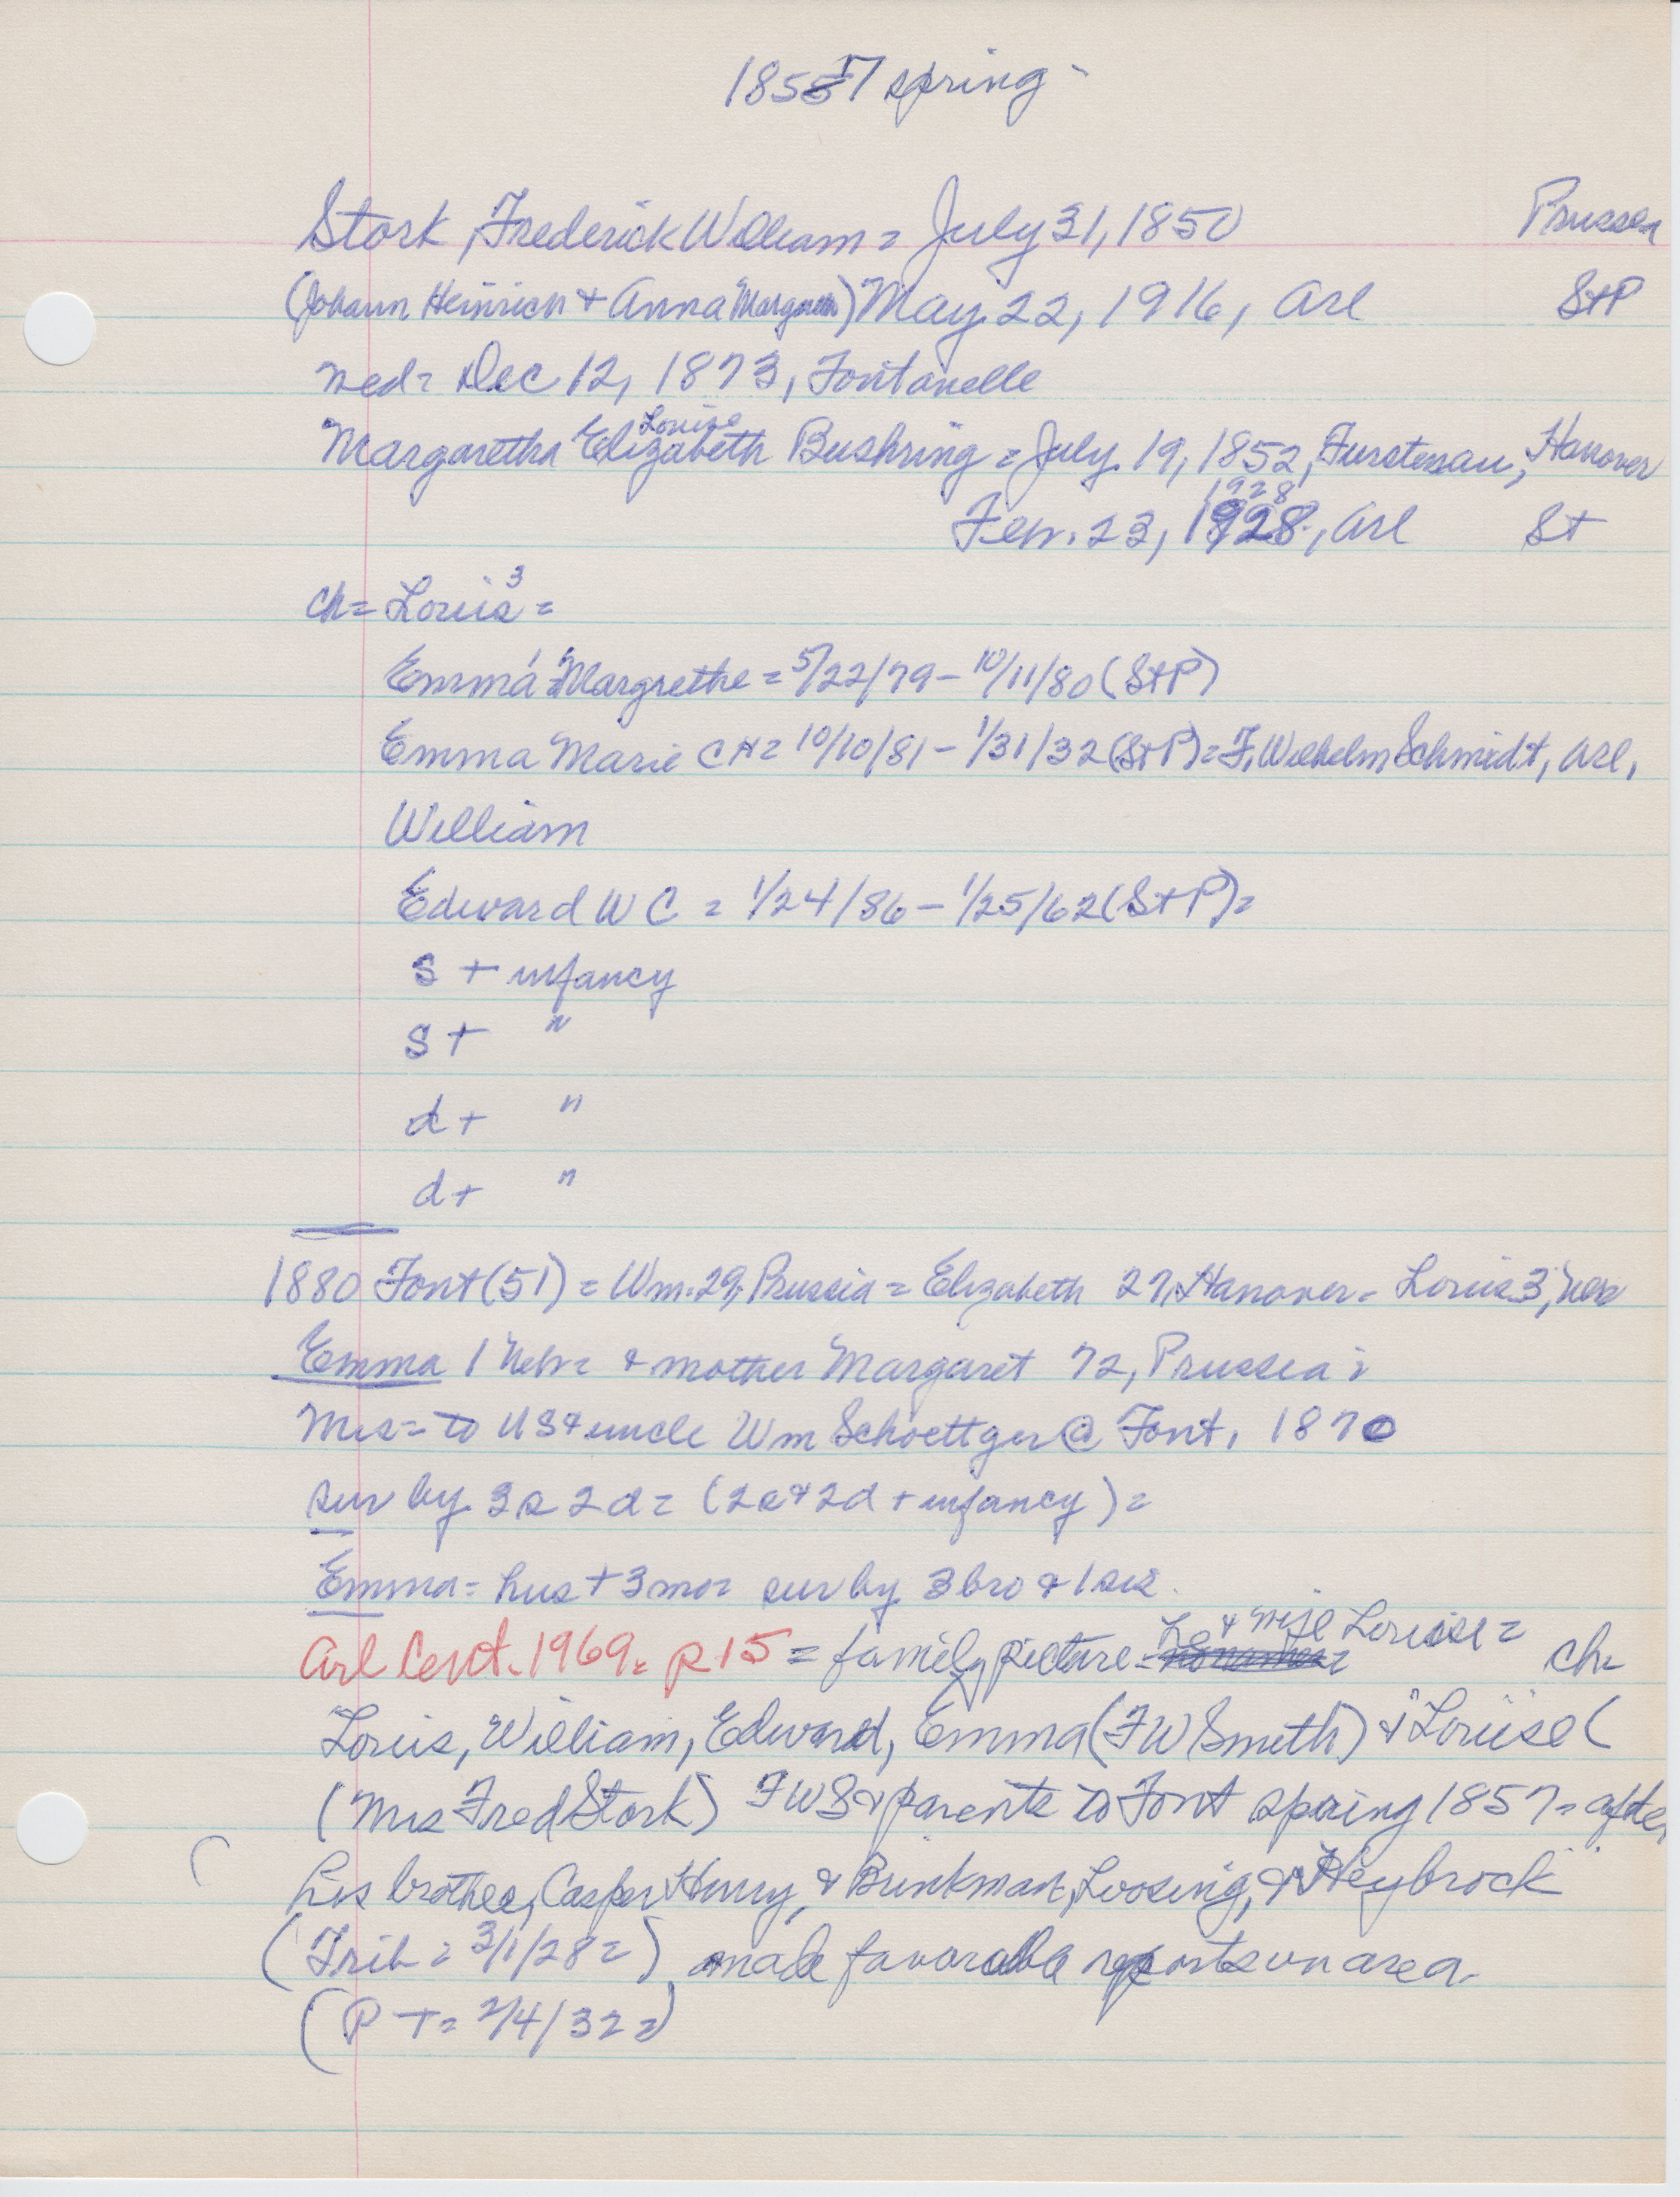 1857 spring -
Stork, Frederick William = July 31, 1850 Prussia
(Johann Heinrich + Anna Margareth) May 22, 1916, Arl StP
med = Dec 12, 1873, Fontanelle
Louise
Margaretha Elizabeth Bushring = July 19, 1852, Furstenau, Hanover
1928
Feb. 23, 1928, Arl St
ch = Louis 3 =
Emma Margrethe = 5/22/79 - 10/11/80 (StP)
Emma Marie CH = 10/10/81 - 1/31/32 (StP) = F. Wilhelm Schmidt, Arl,
William
Edward W C = 1/24/86 - 1/25/62 (StP) =
s + infancy
s + "
d + "
d + "
1880 Font (51) = Wm. 29, Prussia = Elizabeth 27, Hanover = Louis 3, Neb
Emma 1 Neb = & mother Margaret 72, Prussia =
Mrs = to US & uncle Wm Schoettger @ Font, 1870
sur by 3 s 2 d = (2s & 2d + infancy) =
Emma = hus + 3 mo = sur by 3 bro & 1 sis.
& wife Louise =
Arl Cent. 1969 = p 15 = family picture = ch =
Louis, William, Edward, Emma (F W Smith) & "Louise (
(Mrs Fred Stork) FWS & parents to Font spring 1857 = after
his brother, Casper Henry, & Brinkman, Loosing, & Heybrock"
(Trib = 3/1/28 =) made favorable reports on area.
(P T = 2/4/32 =)